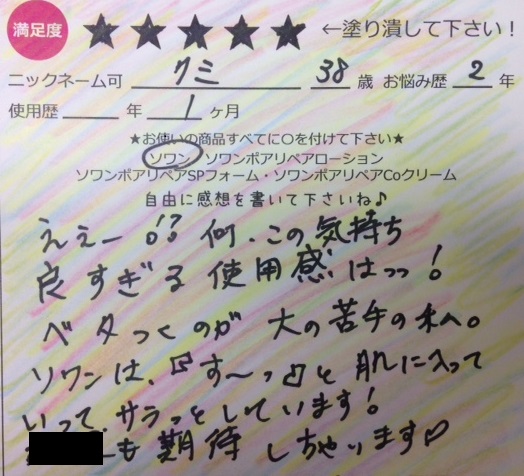 満足度 ★★★★★ ←塗り潰して下さい!
ニックネーム可 クミ 38 歳 お悩み歴 2 年
使用歴 年 1 ヶ月
★お使いの商品すべてに○を付けて下さい★
ソワン ソワンポアリペアローション
ソワンポアリペアSPフォーム・ソワンポアリペアCoクリーム
自由に感想を書いて下さいね♪
ええー!!? 何、この気持ち
良すぎる 使用感はっっ!
ベタつくのが 大の苦手の私。
ソワンは、『す〜っ』と肌に入って
いって、サラっとしています!
も期待しちゃいます♡